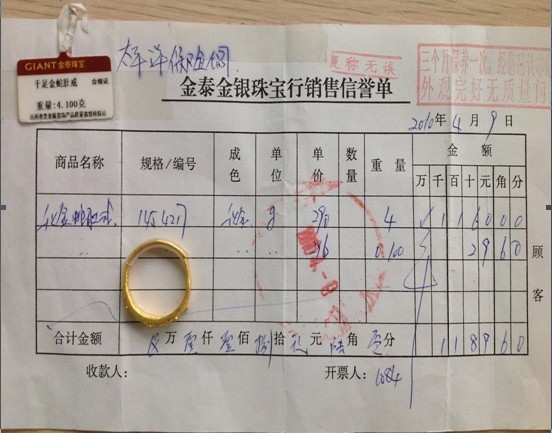 GIANT金泰珠宝
千足金蛇肚戒
合格证
重量:4.100克
太平洋保险阁
复称无误
三个月保养一次,
外观完好无质量问
金泰金银珠宝行销售信誉单
2010年4月9日
商品名称 规格/编号 成色 单位 单价 数量 重量 金额
万 千 百 十 元 角 分
145427 千金 g 290 4 1 1 6 0 0 0
296 0.100 2 9 6 0
顾客
合计金额 万 壹仟 壹佰 捌拾 元 角 分 1 1 8 9 6 0
收款人: 开票人:1084